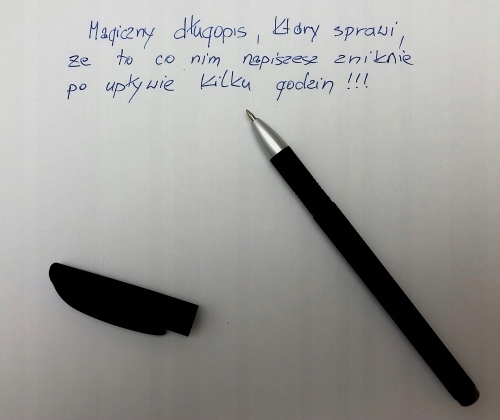 Magiczny długopis, który sprawi,
że to co nim napiszesz zniknie
po upływie kilku godzin !!!